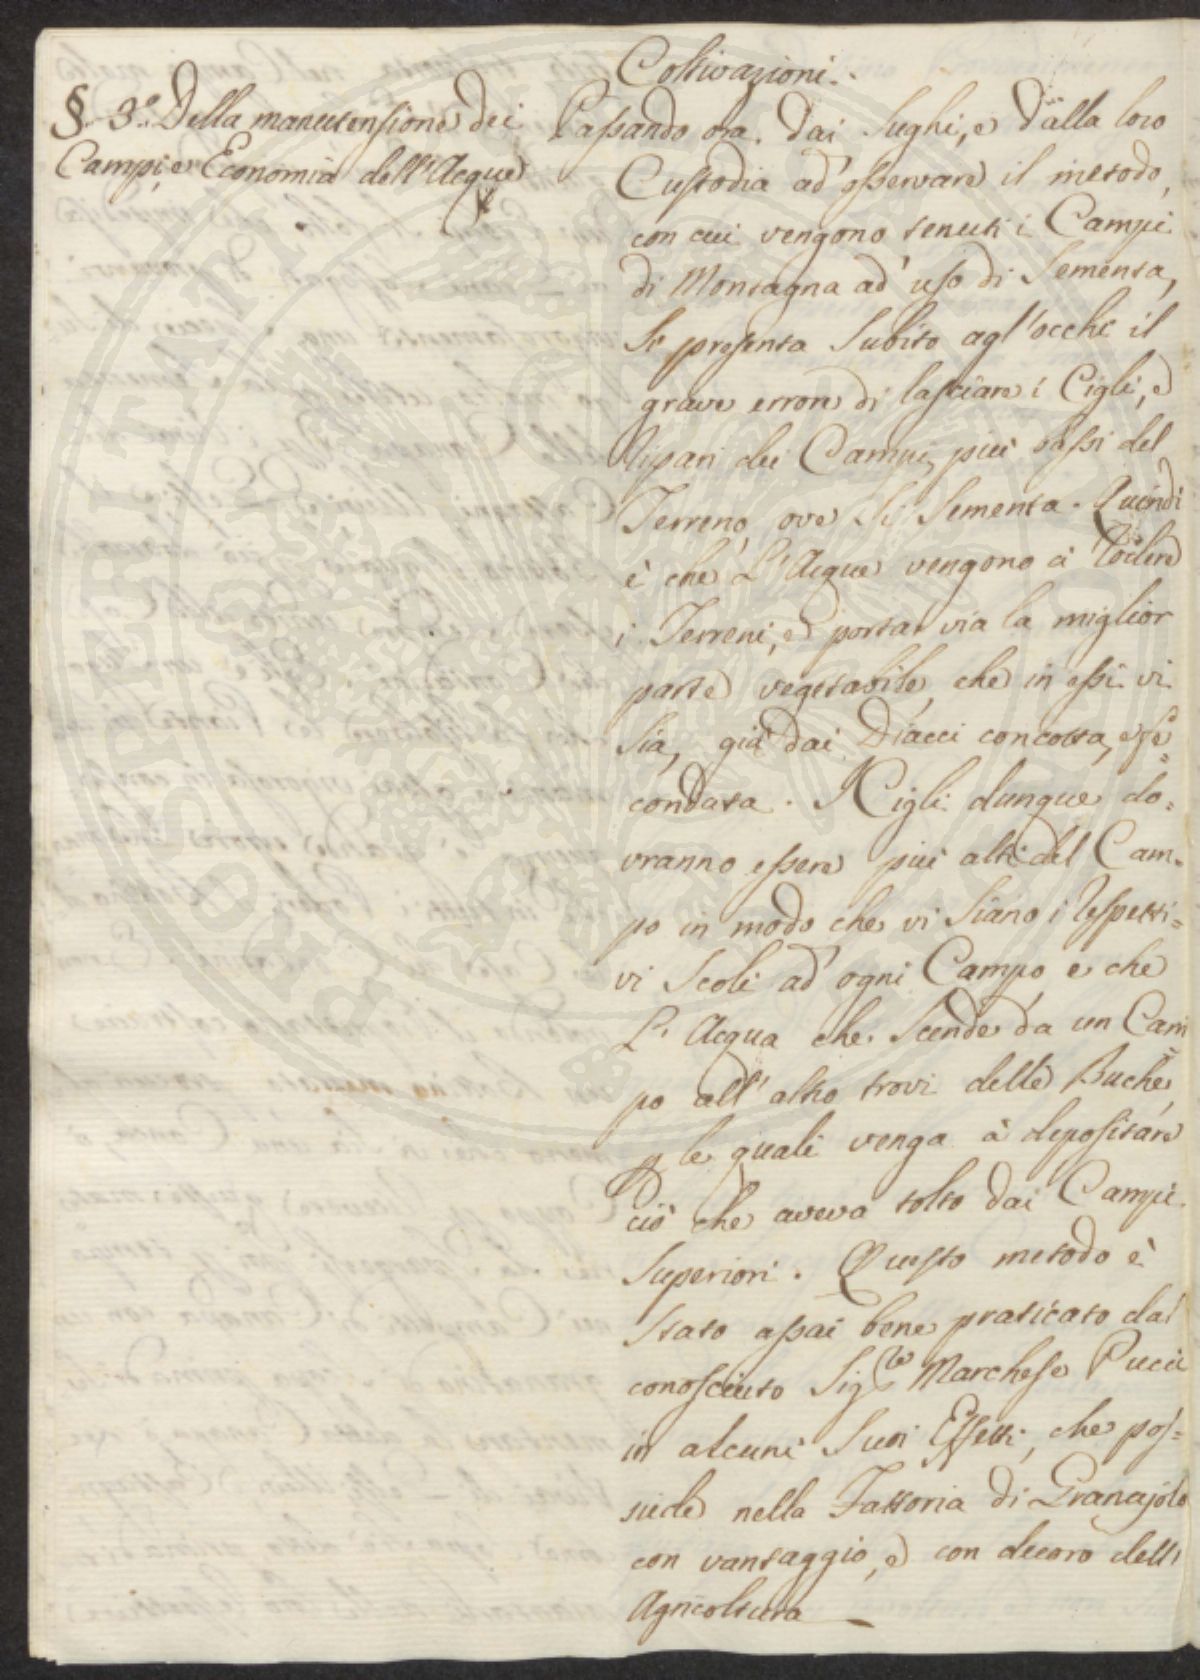 §. 3.o Della manutensione dei
Campi, e Economia dell'Acque
Coltivazioni.
Passando ora dai Sughi, e dalla loro
Custodia ad' osservare il metodo,
con cui vengono tenuti i Campi
di Montagna ad' uso di Sementa,
Si presenta Subito agl'occhi il
grave errore di lasciare i Cigli, e
Ripari dei Campi, più bassi del
Terreno, ove Si Sementa. Quindi
è che L'Acque vengono à Rodere
i Terreni, e portar via la miglior
parte vegetabile, che in essi vi
Sia, già dai Diacci concotta, e fe=
condata. I Cigli dunque do=
vranno essere più alti del Cam=
po in modo che vi Siano i Respetti=
vi Scoli ad' ogni Campo e che
L'Acqua che Scende da un Cam
po all' altro trovi delle Buche,
le quali venga à depositare
ciò che aveva tolto dai Campi
Superiori. Questo metodo è
Stato assai bene praticato dal
conosciuto Sig.re Marchese Pucci
in alcuni Suoi Effetti, che pos=
siede nella Fattoria di Granajolo
con vantaggio, e con decoro dell'
Agricoltura
PROSPERITATI